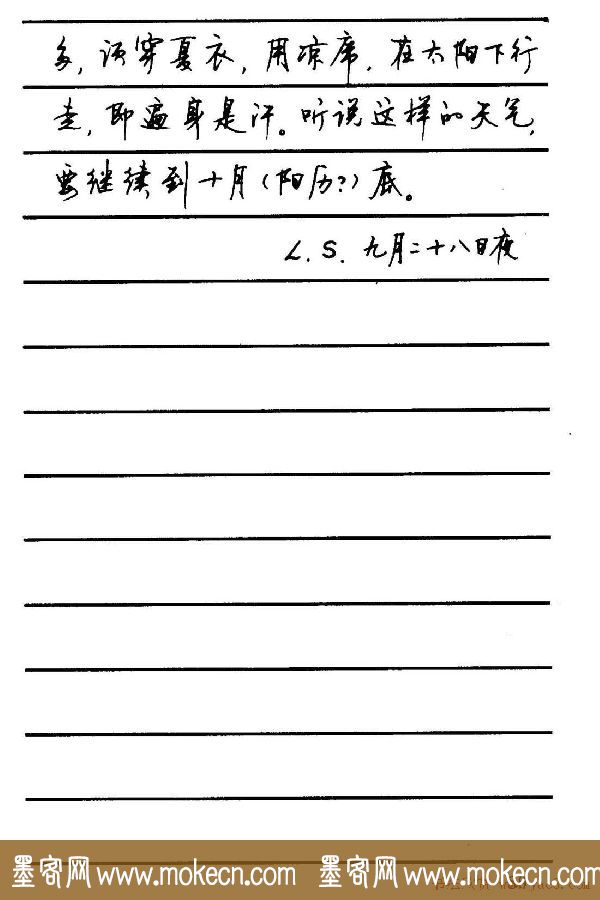 多，须穿夏衣，用凉席，在太阳下行
走，即遍身是汗。听说这样的天气，
要继续到十月（阳历？）底。
L.S. 九月二十八日夜
墨客网 www.mokecn.com 墨客网 www.mokecn.com